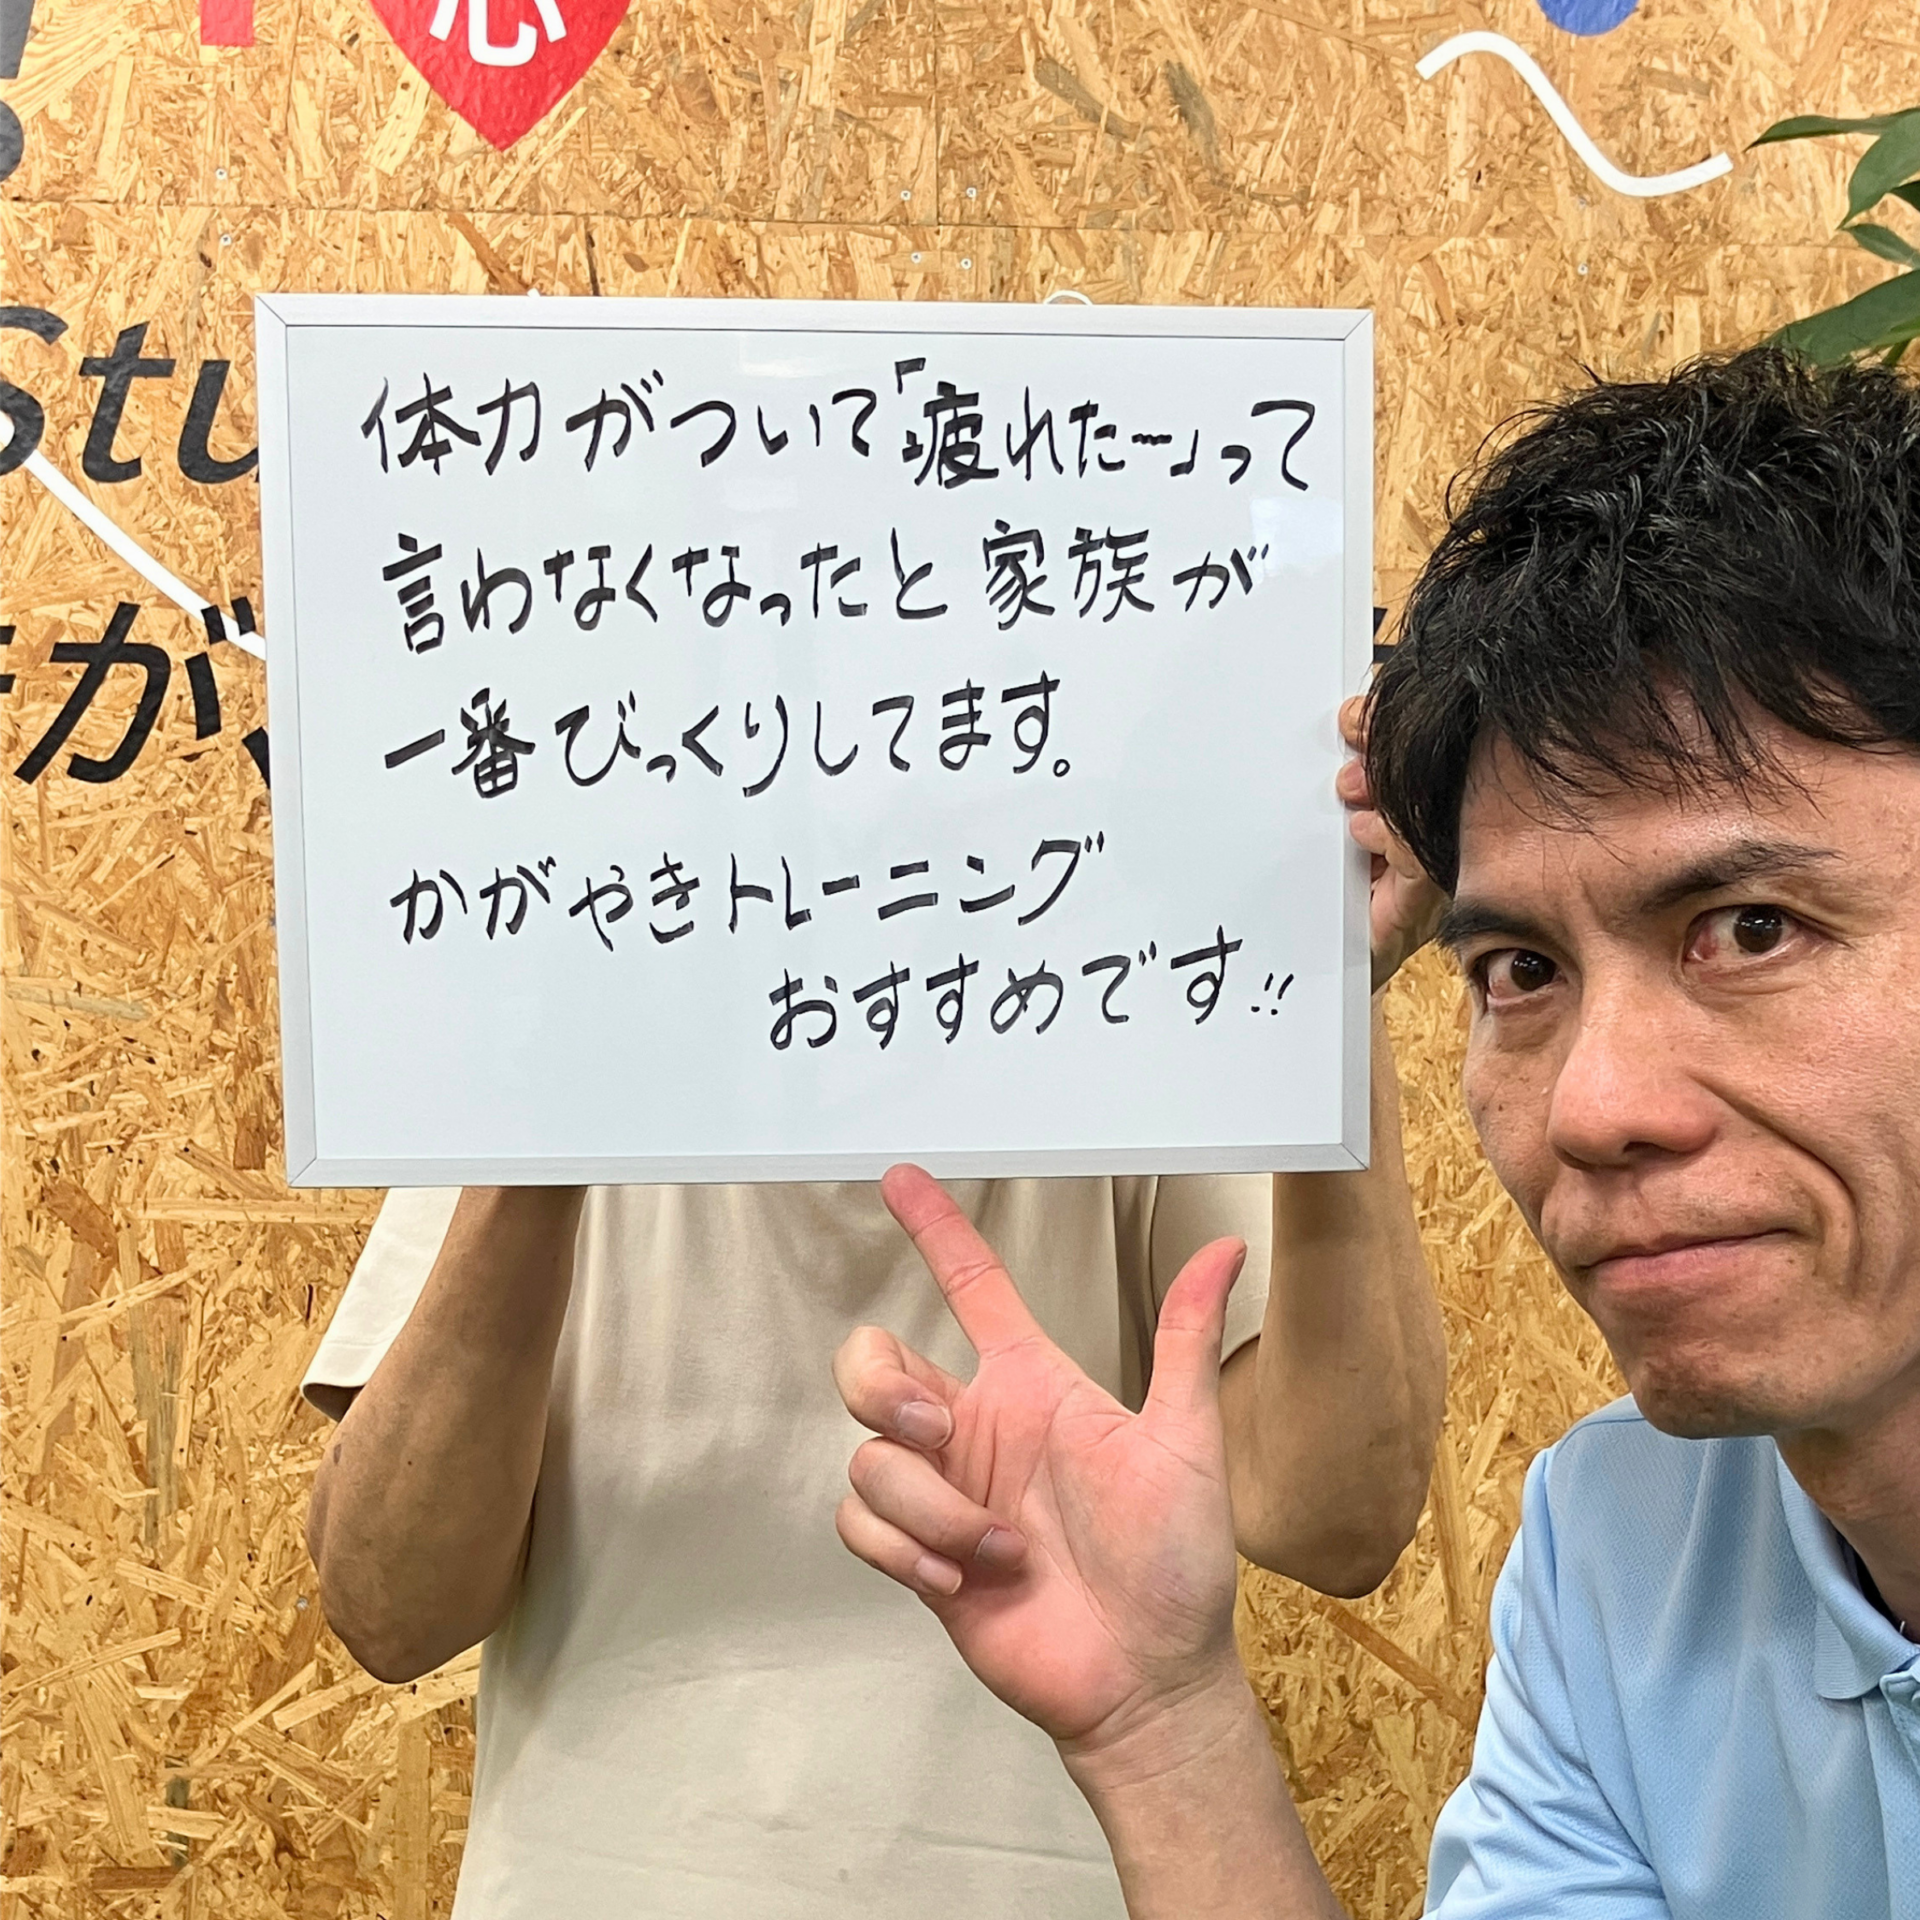 心
Stu
が、
体力がついて「疲れた〜」って
言わなくなったと家族が
一番びっくりしてます。
かがやきトレーニング
おすすめです!!